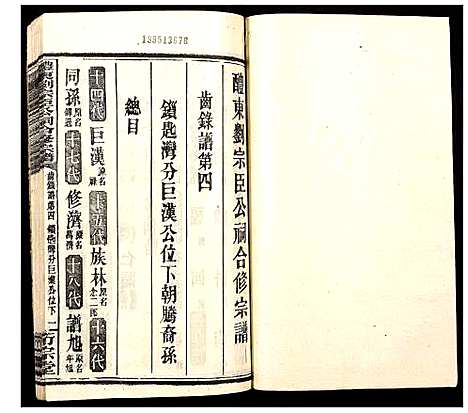 13951367
醴東劉宗臣公祠合修宗譜
齒錄譜第四
鎖匙灣分巨漢公位下朝騰裔孫
總目
十四代 巨漢 原名 十五代 族林 原名 十六代
同孫 原名 十七代 修濟 原名 十八代 譜旭 原名
醴東劉宗臣公祠合修宗譜 齒錄譜第四 鎖匙灣分巨漢公位下